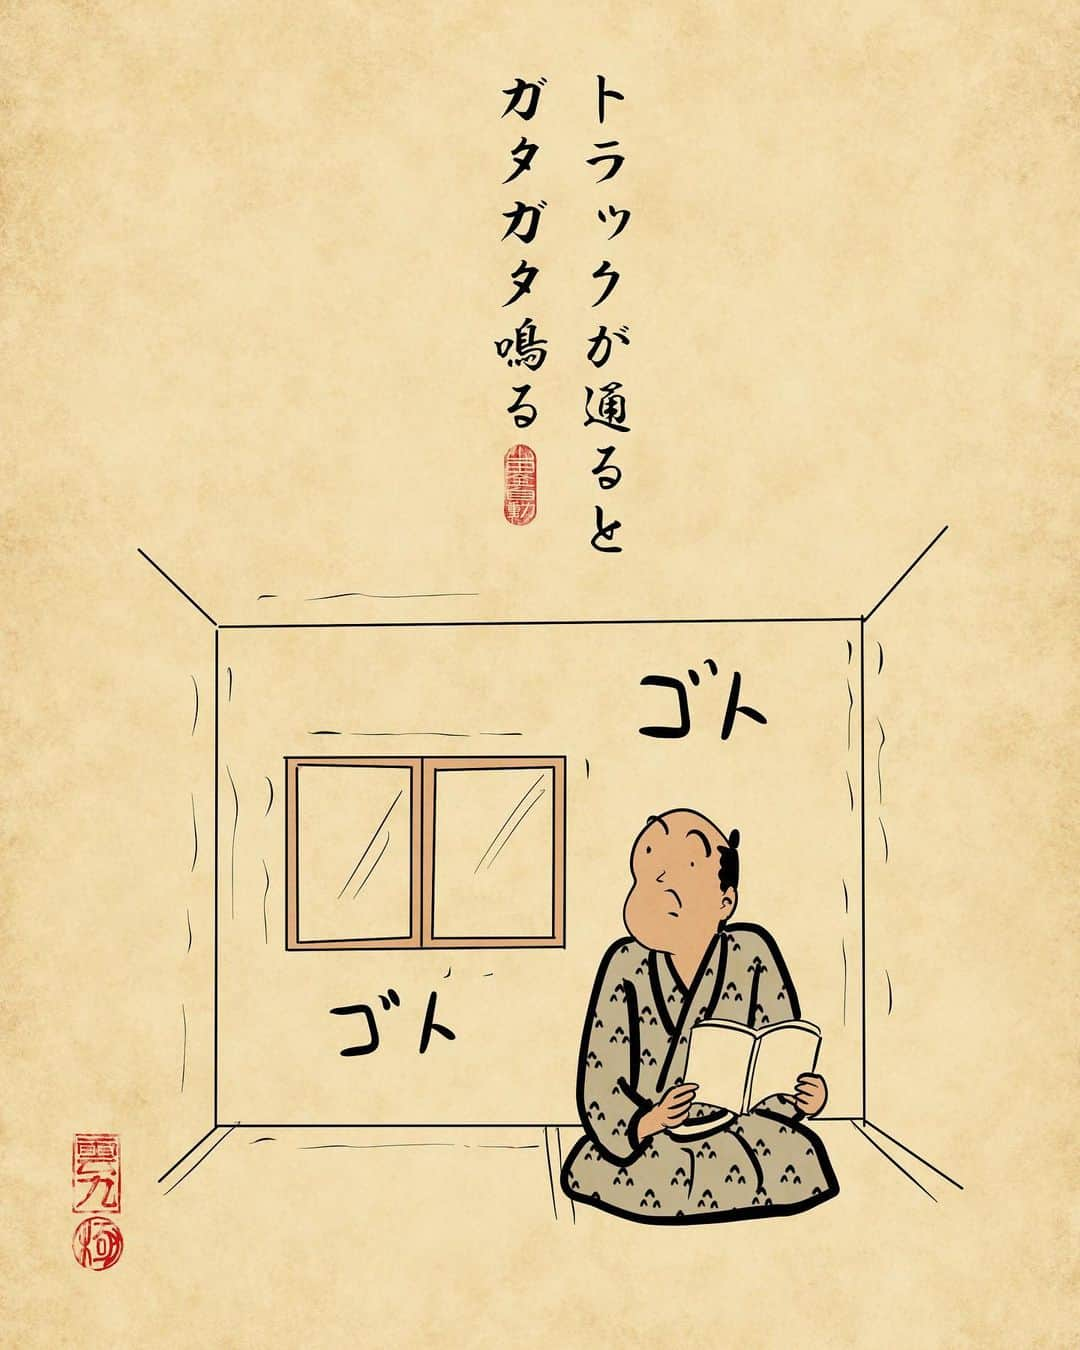 トラックが通ると
ガタガタ鳴る
ゴト
ゴト